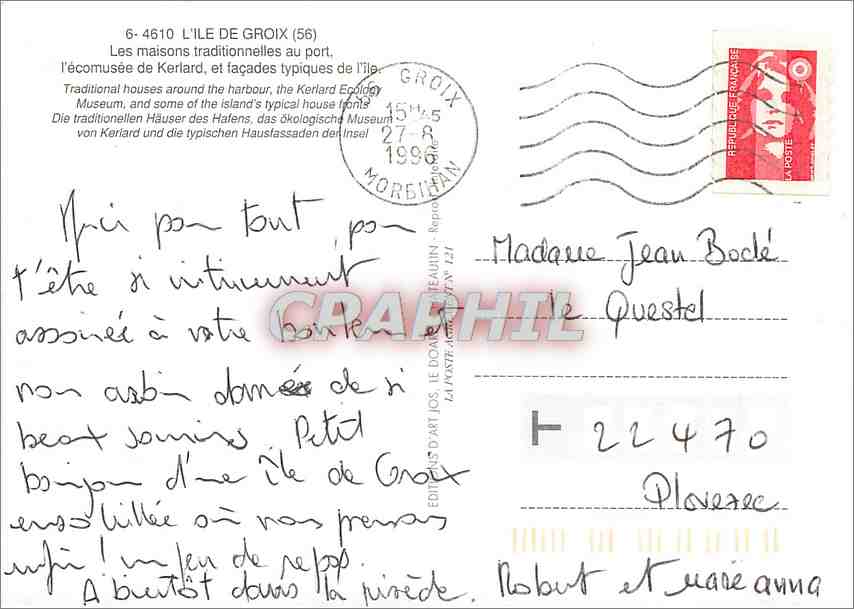 6- 4610 L'ILE DE GROIX (56)
Les maisons traditionnelles au port,
l'écomusée de Kerlard, et façades typiques de l'île.
Traditional houses around the harbour, the Kerlard Ecology
Museum, and some of the island's typical house fronts
Die traditionellen Häuser des Hafens, das ökologische Museum
von Kerlard und die typischen Hausfassaden der Insel
GROIX
15H45
27-8
1996
MORBIHAN
REPUBLIQUE FRANÇAISE
LA POSTE
Merci pour tout, pour
t'être si intimement
associée à votre bonheur et
nous avoir donnée de si
beaux
Petit
bonjour d'une île de Groix
ensoleillée où nous prenons
enfin ! un peu de repos.
A bientôt dans la
Robert et marie anna
EDITIONS D'ART JOS LE DOARÉ
Madame Jean Bodé
le Questel
T 22470
Plouezec
CPARPHIL